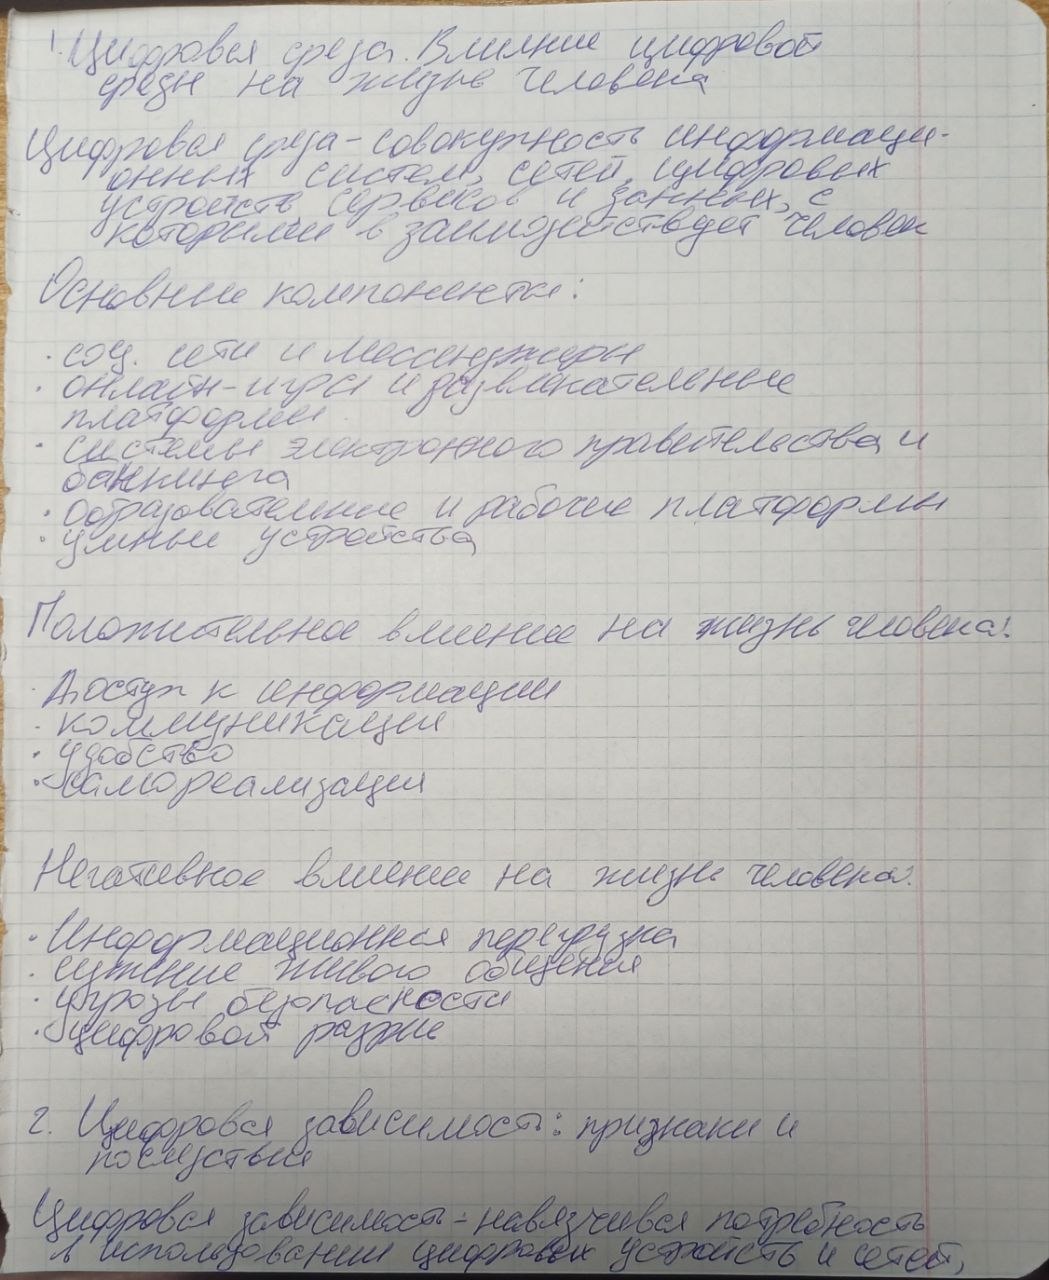 1. Цифровая среда. Влияние цифровой
среды на жизнь человека
Цифровая среда - совокупность информаци-
онных систем, сетей, цифровых
устройств, сервисов и данных, с
которыми взаимодействует человек
Основные компоненты:
· соц. сети и мессенджеры
· онлайн-игры и развлекательные
платформы
· системы электронного правительства и
банкинга
· образовательные и рабочие платформы
· умные устройства
Положительное влияние на жизнь человека:
· Доступ к информации
· коммуникация
· удобство
· самореализация
Негативное влияние на жизнь человека:
· Информационная перегрузка
· снижение живого общения
· угрозы безопасности
· цифровой разрыв
2. Цифровая зависимость: признаки и
последствия
Цифровая зависимость - навязчивая потребность
в использовании цифровых устройств и сетей,